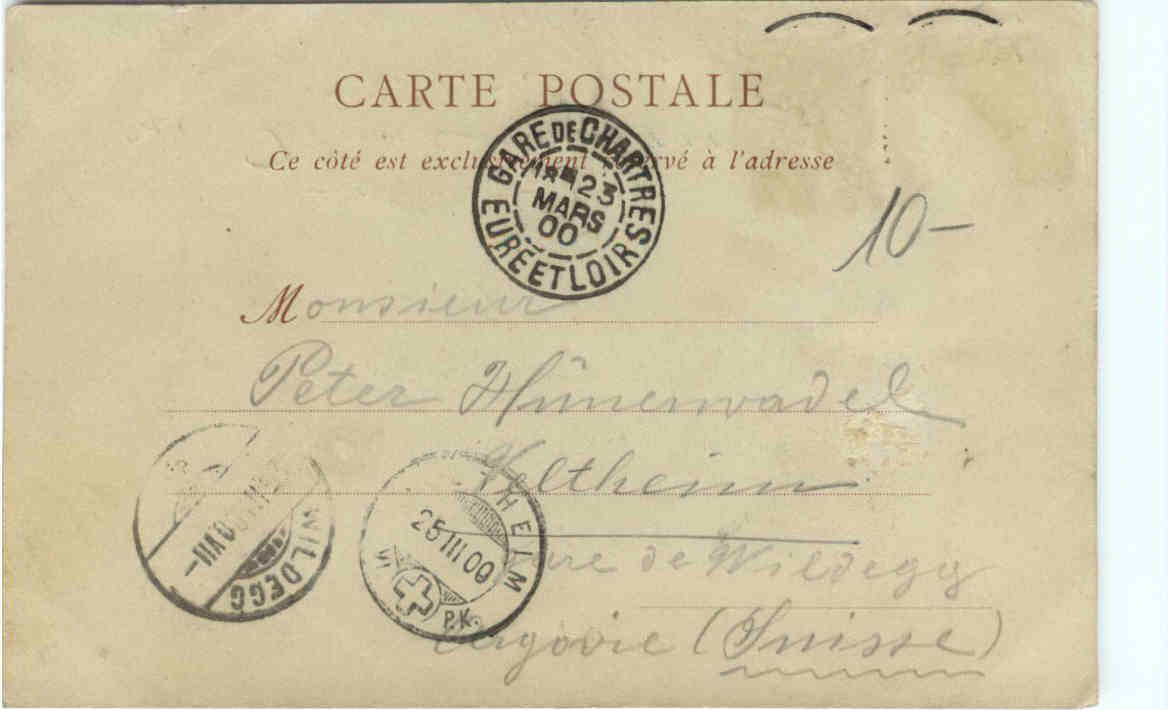 CARTE POSTALE
Ce côté est exclusivement réservé à l'adresse
GARE DE CHARTRES
23
MARS
00
EURE ET LOIR
10-
Monsieur
Peter Hünerwadel
Veltheim
Gare de Wildegg
Argovie (Suisse)
WILDEGG
THEIM
25 III 00
VI
P.K.